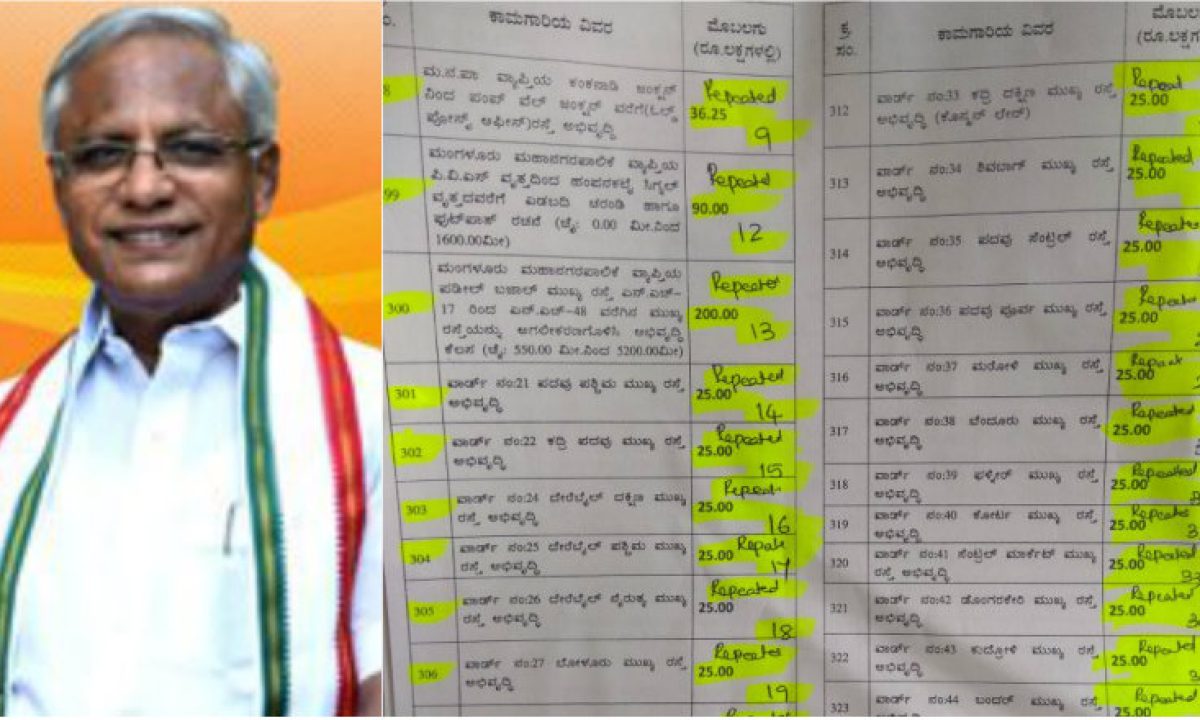 ಸಂ.
ಕಾಮಗಾರಿಯ ವಿವರ
ಮೊಬಲಗು
(ರೂ.ಲಕ್ಷಗಳಲ್ಲಿ)
8
ಮ.ನ.ಪಾ ವ್ಯಾಪ್ತಿಯ ಕಂಕನಾಡಿ ಜಂಕ್ಷನ್
ನಿಂದ ಪಂಪ್ ವೆಲ್ ಜಂಕ್ಷನ್ ವರೆಗೆ(ಓಲ್ಡ್
ಪೋಸ್ಟ್ ಆಫೀಸ್)ರಸ್ತೆ ಅಭಿವೃದ್ಧಿ
Repeated
36.25
9
99
ಮಂಗಳೂರು ಮಹಾನಗರಪಾಲಿಕೆ ವ್ಯಾಪ್ತಿಯ
ಪಿ.ವಿ.ಎಸ್ ವೃತ್ತದಿಂದ ಹಂಪನಕಟ್ಟೆ ಸಿಗ್ನಲ್
ವೃತ್ತದವರೆಗೆ ಎಡಬದಿ ಚರಂಡಿ ಹಾಗೂ
ಫುಟ್‌ಪಾತ್ ರಚನೆ (ಚೈ: 0.00 ಮೀ.ನಿಂದ
1600.00ಮೀ)
Repeated
90.00
12
300
ಮಂಗಳೂರು ಮಹಾನಗರಪಾಲಿಕೆ ವ್ಯಾಪ್ತಿಯ
ಪಡೀಲ್ ಬಜಾಲ್ ಮುಖ್ಯ ರಸ್ತೆ ಎನ್.ಎಚ್-
17 ರಿಂದ ಎನ್.ಎಚ್-48 ವರೆಗಿನ ಮುಖ್ಯ
ರಸ್ತೆಯನ್ನು ಅಗಲೀಕರಣಗೊಳಿಸಿ ಅಭಿವೃದ್ಧಿ
ಕೆಲಸ (ಚೈ: 550.00 ಮೀ.ನಿಂದ 5200.00ಮೀ)
Repeated
200.00
13
301
ವಾರ್ಡ್ ನಂ:21 ಪದವು ಪಶ್ಚಿಮ ಮುಖ್ಯ ರಸ್ತೆ
ಅಭಿವೃದ್ಧಿ
Repeated
25.00
14
302
ವಾರ್ಡ್ ನಂ:22 ಕದ್ರಿ ಪದವು ಮುಖ್ಯ ರಸ್ತೆ
ಅಭಿವೃದ್ಧಿ
Repeated
25.00
15
303
ವಾರ್ಡ್ ನಂ:24 ದೇರೆಬೈಲ್ ದಕ್ಷಿಣ ಮುಖ್ಯ
ರಸ್ತೆ ಅಭಿವೃದ್ಧಿ
Repeat
25.00
16
304
ವಾರ್ಡ್ ನಂ:25 ದೇರೆಬೈಲ್ ಪಶ್ಚಿಮ ಮುಖ್ಯ
ರಸ್ತೆ ಅಭಿವೃದ್ಧಿ
25.00
17
305
ವಾರ್ಡ್ ನಂ:26 ದೇರೆಬೈಲ್ ನೈರುತ್ಯ ಮುಖ್ಯ
ರಸ್ತೆ ಅಭಿವೃದ್ಧಿ
Repeated
25.00
18
306
ವಾರ್ಡ್ ನಂ:27 ಬೋಳೂರು ಮುಖ್ಯ ರಸ್ತೆ
ಅಭಿವೃದ್ಧಿ
Repeated
25.00
19
ಕ್ರ.
ಸಂ.
ಕಾಮಗಾರಿಯ ವಿವರ
ಮೊಬಲಗು
(ರೂ.ಲಕ್ಷಗ
312
ವಾರ್ಡ್ ನಂ:33 ಕದ್ರಿ ದಕ್ಷಿಣ ಮುಖ್ಯ ರಸ್ತೆ
ಅಭಿವೃದ್ಧಿ (ಕೊಸ್ಮಸ್ ಲೇನ್)
Repeat
25.00
313
ವಾರ್ಡ್ ನಂ:34 ಶಿವಬಾಗ್ ಮುಖ್ಯ ರಸ್ತೆ
ಅಭಿವೃದ್ಧಿ
Repeated
25.00
314
ವಾರ್ಡ್ ನಂ:35 ಪದವು ಸೆಂಟ್ರಲ್ ರಸ್ತೆ
ಅಭಿವೃದ್ಧಿ
Repeate
25.00
315
ವಾರ್ಡ್ ನಂ:36 ಪದವು ಪೂರ್ವ ಮುಖ್ಯ ರಸ್ತೆ
ಅಭಿವೃದ್ಧಿ
Repeate
25.00
316
ವಾರ್ಡ್ ನಂ:37 ಮರೋಳಿ ಮುಖ್ಯ ರಸ್ತೆ
ಅಭಿವೃದ್ಧಿ
25.00
317
ವಾರ್ಡ್ ನಂ:38 ಬೆಂದೂರು ಮುಖ್ಯ ರಸ್ತೆ
ಅಭಿವೃದ್ಧಿ
Repeated
25.00
318
ವಾರ್ಡ್ ನಂ:39 ಫಳ್ನೀರ್ ಮುಖ್ಯ ರಸ್ತೆ
ಅಭಿವೃದ್ಧಿ
Repeated
25.00
319
ವಾರ್ಡ್ ನಂ:40 ಕೋರ್ಟ್ ಮುಖ್ಯ ರಸ್ತೆ
ಅಭಿವೃದ್ಧಿ
Repeate
25.00
320
ವಾರ್ಡ್ ನಂ:41 ಸೆಂಟ್ರಲ್ ಮಾರ್ಕೆಟ್ ಮುಖ್ಯ
ರಸ್ತೆ ಅಭಿವೃದ್ಧಿ
Repeated
25.00
321
ವಾರ್ಡ್ ನಂ:42 ಡೊಂಗರಕೇರಿ ಮುಖ್ಯ ರಸ್ತೆ
ಅಭಿವೃದ್ಧಿ
Repeate
25.00
322
ವಾರ್ಡ್ ನಂ:43 ಕುದ್ರೋಳಿ ಮುಖ್ಯ ರಸ್ತೆ
ಅಭಿವೃದ್ಧಿ
Repeated
25.00
323
ವಾರ್ಡ್ ನಂ:44 ಬಂದರ್ ಮುಖ್ಯ ರಸ್ತೆ
ಅಭಿವೃದ್ಧಿ
Repeated
25.00